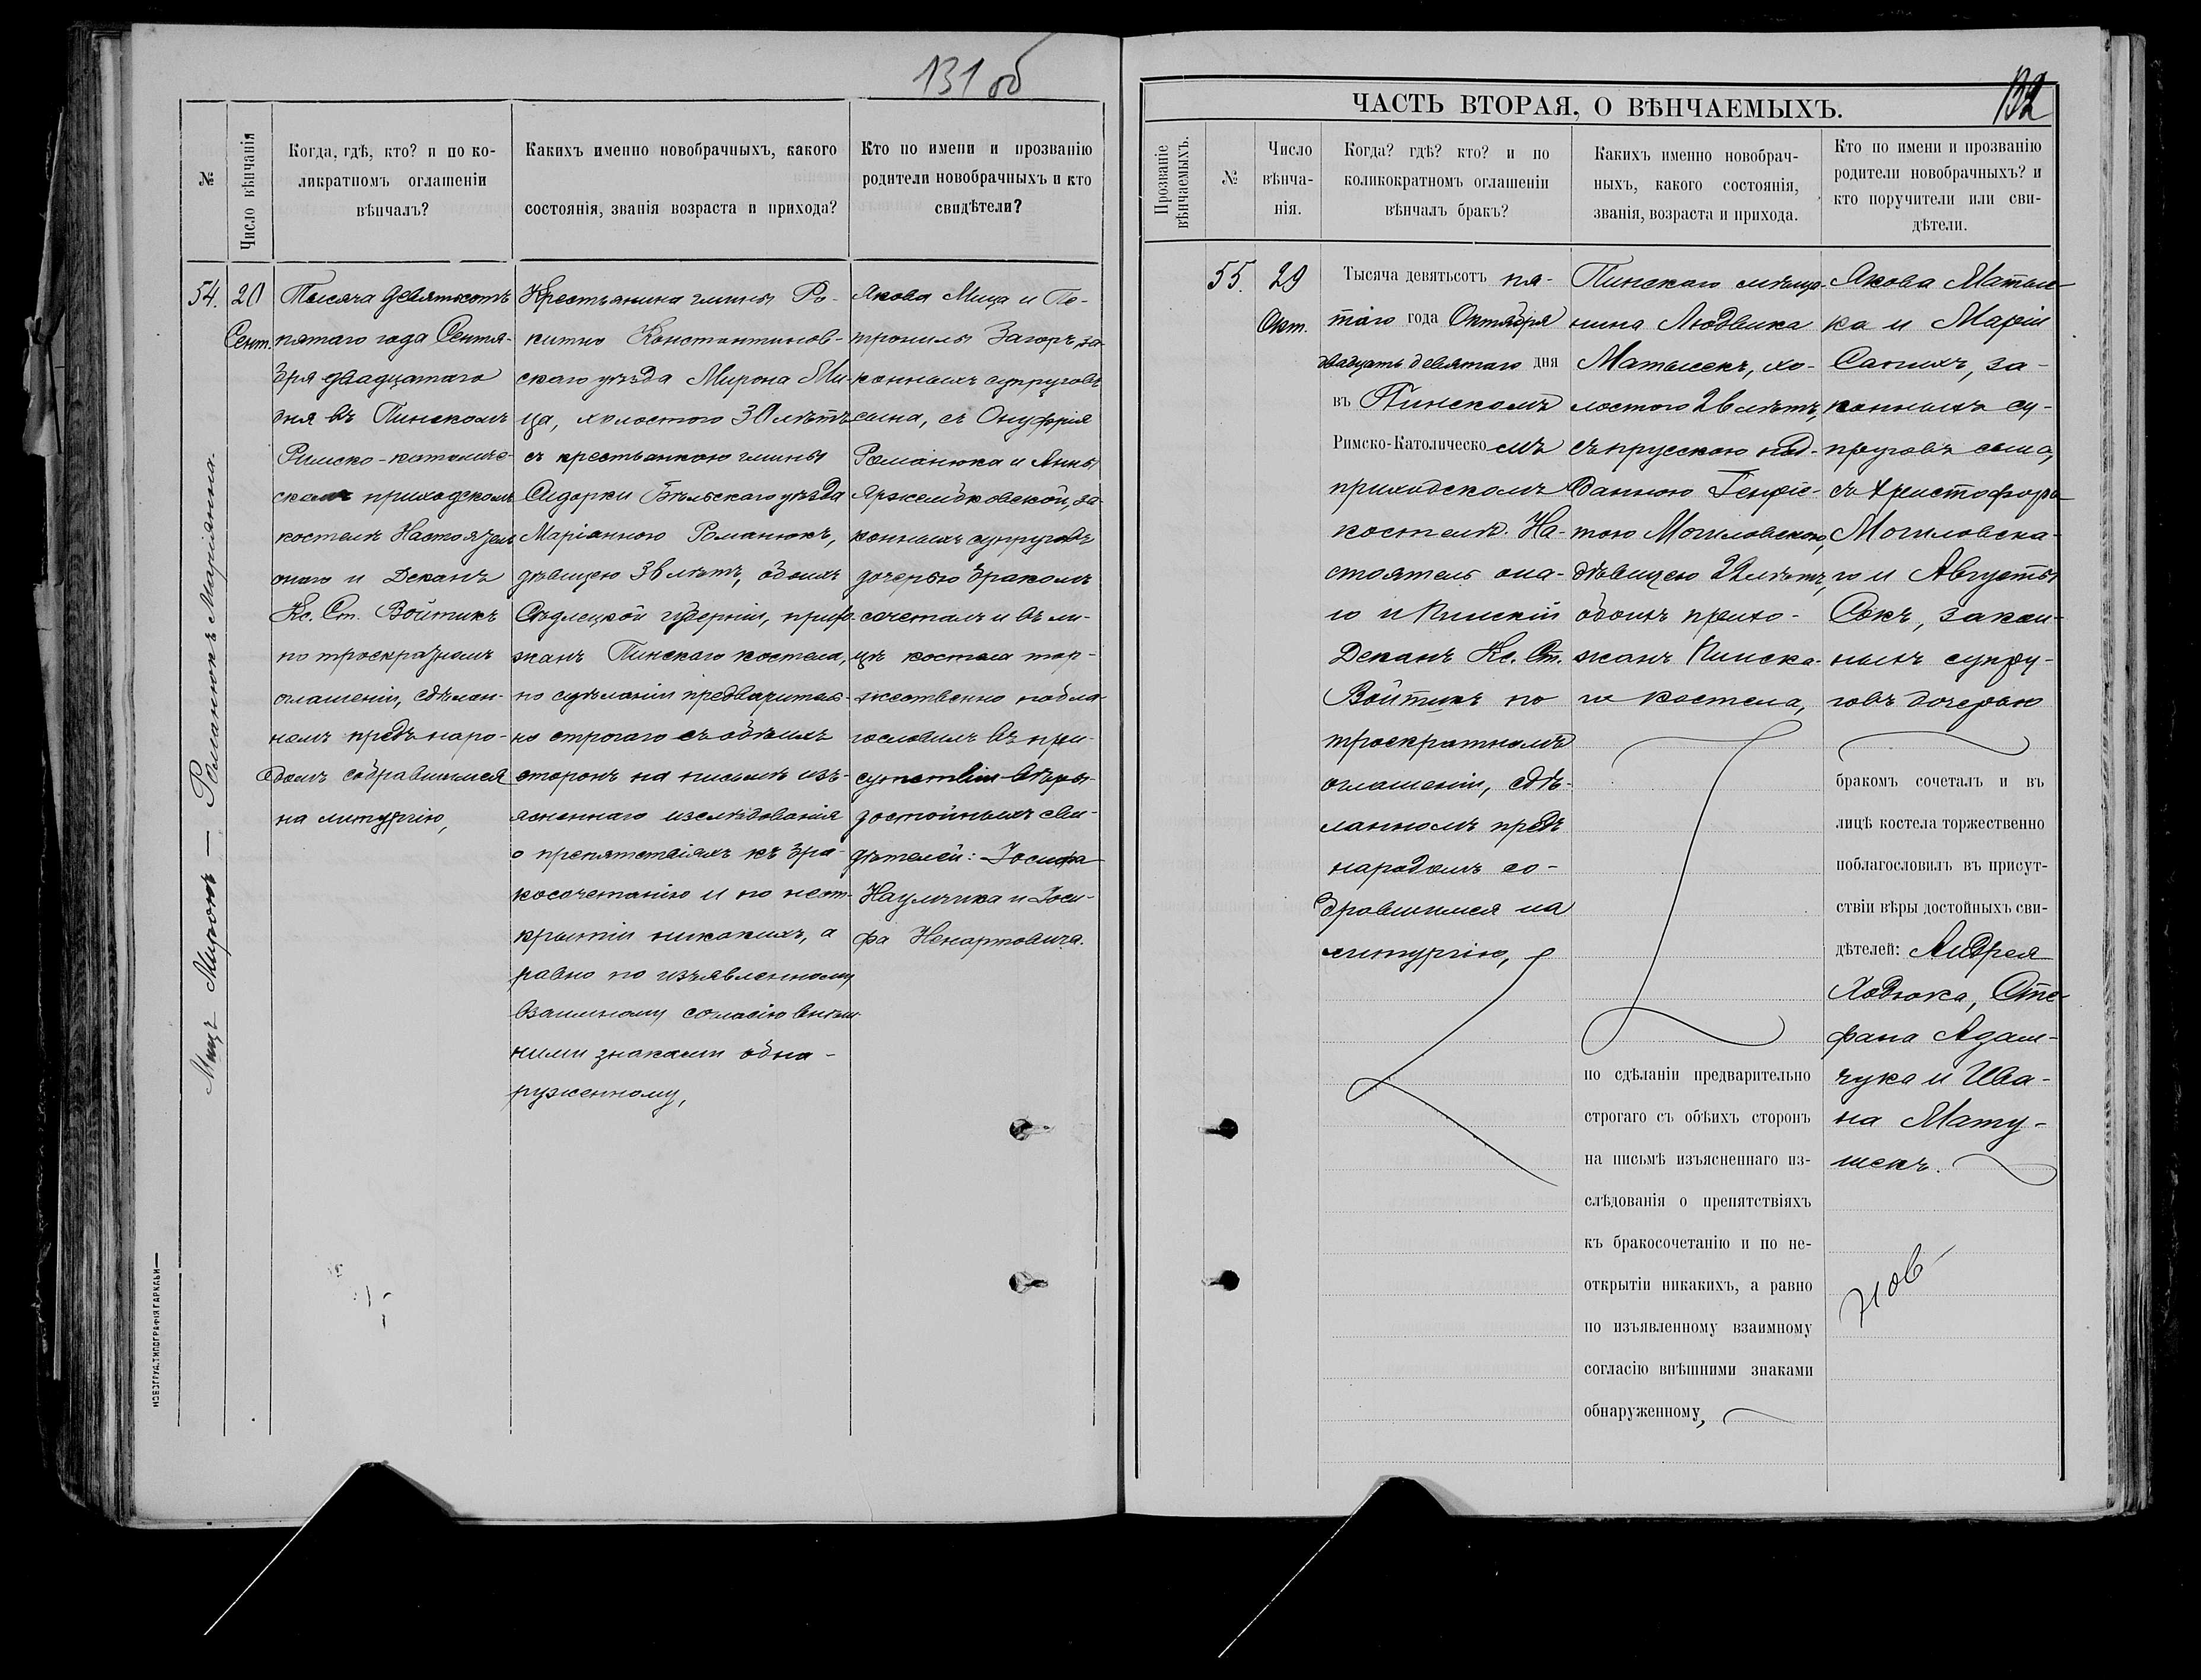 131 об
№
Число вѣнчанія
Когда, гдѣ, кто? и по ко-
ликратномъ оглашеніи
вѣнчалъ?
Какихъ именно новобрачныхъ, какого
состоянія, званія возраста и прихода?
Кто по имени и прозванію
родители новобрачныхъ и кто
свидѣтели?
Мицъ Миронъ — Романюкъ Маріанна.
54.
20
Сент.
Тысяча девятьсотъ
пятаго года Сентя-
бря двадцатаго
дня въ Пинскомъ
Римско-католиче-
скомъ приходскомъ
костелѣ Настоятель
оного и Деканъ
Кс. Ст. Войтикъ
по троекратномъ
оглашеніи, сдѣлан-
номъ предъ наро-
домъ собравшимся
на литургію,
Крестьянина гмины Ро-
китно Константинов-
скаго уѣзда Мирона Ми-
ца, холостого 30 лѣтъ
съ крестьянкою гмины
Сидорки Бѣльскаго уѣзда
Маріанною Романюкъ,
дѣвицею 36 лѣтъ, обоихъ
Сѣдлецкой губерніи, прихо-
жанъ Пинскаго костела,
по сдѣланіи предваритель-
но строгаго съ обѣихъ
сторонъ на письмѣ изъ-
ясненнаго изслѣдованія
о препятствіяхъ къ бра-
косочетанію и по неот-
крытіи никакихъ, а
равно по изъявленному
взаимному согласію внѣш-
ними знаками обна-
руженному,
Якова Мица и Пе-
тронилы Загоръ, за-
конныхъ супруговъ
сына, съ Онуфрія
Романюка и Анны
Яржембковской, за-
конныхъ супруговъ
дочерью бракомъ
сочеталъ и въ ли-
цѣ костела тор-
жественно побла-
гословилъ въ при-
сутствіи вѣры
достойныхъ сви-
дѣтелей: Іосифа
Наумчика и Іоси-
фа Ненартовича.
НОВОГРУД. ТИПОГРАФІЯ ГАРКАВИ
132
ЧАСТЬ ВТОРАЯ, О ВѢНЧАЕМЫХЪ.
Прозваніе
вѣнчаемыхъ.
№
Число
вѣнча-
нія.
Когда? гдѣ? кто? и по
коликократномъ оглашеніи
вѣнчалъ бракъ?
Какихъ именно новобрач-
ныхъ, какого состоянія,
званія, возраста и прихода.
Кто по имени и прозванію
родители новобрачныхъ? и
кто поручители или сви-
дѣтели.
55.
29
Окт.
Тысяча девятьсотъ пя-
таго года Октября
двадцать девятаго дня
въ Пинскомъ
Римско-Католическомъ
приходскомъ
костелѣ. На-
стоятель она-
го и Пинскій
Деканъ Кс. Ст.
Войтикъ по
троекратномъ
оглашеніи, сдѣ-
ланномъ предъ
народомъ со-
бравшимся на
литургію,
Пинскаго мѣща-
нина Людвика
Матысекъ, хо-
лостого 26 лѣтъ,
съ прусскою под-
данною Генріе-
тою Могиловскою,
дѣвицею 22 лѣтъ,
обоихъ прихо-
жанъ Пинска-
го костела,
по сдѣланіи предварительно
строгаго съ обѣихъ сторонъ
на письмѣ изъясненнаго из-
слѣдованія о препятствіяхъ
къ бракосочетанію и по не-
открытіи никакихъ, а равно
по изъявленному взаимному
согласію внѣшними знаками
обнаруженному,
Якова Матысе-
ка и Маріи
Сапихъ, за-
конныхъ су-
пруговъ сына,
съ Христофора
Могиловска-
го и Августы
Сокъ, закон-
ныхъ супру-
говъ дочерью
бракомъ сочеталъ и въ
лицѣ костела торжественно
поблагословилъ въ присут-
ствіи вѣры достойныхъ сви-
дѣтелей: Андрея
Ходюка, Сте-
фана Адам-
чука и Ива-
на Мату-
шекъ.